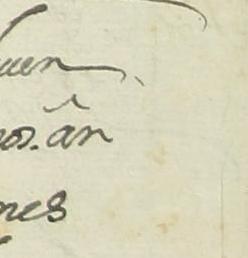 uen
os. ân
nes